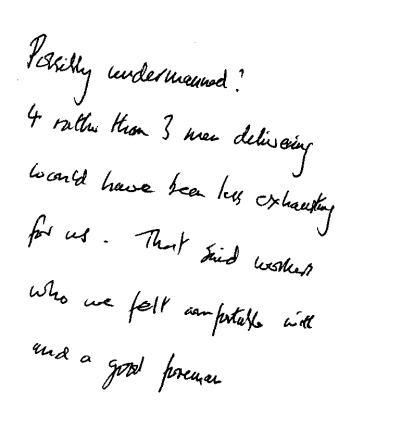 Possibly undermanned?
4 rather than 3 men delivering
would have been less exhausting
for us. That said workers
who we felt comfortable with
and a good foreman